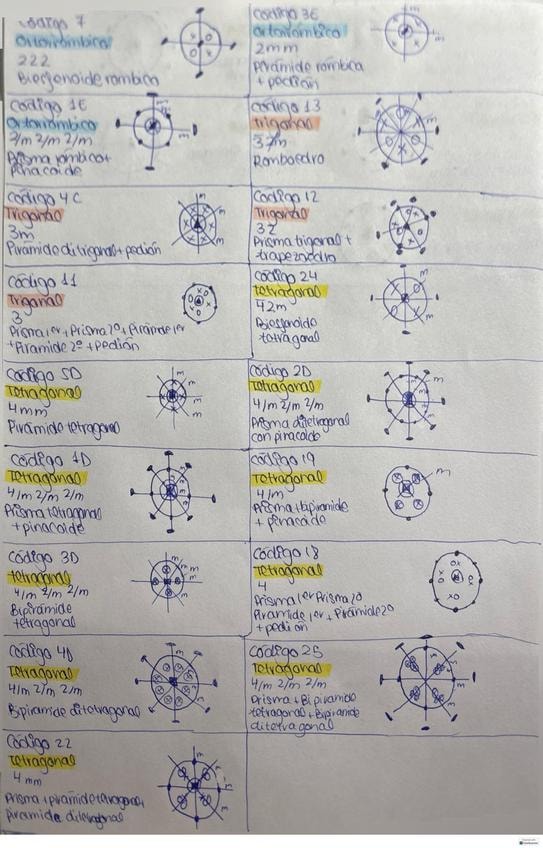 Código 7
Ortorrómbico
222
Biesfenoide rómbico
Código 3E
Ortorrómbico
2mm
Pirámide rómbica
+ pedión
Código 1E
Ortorrómbico
2/m 2/m 2/m
Prisma rómbico+
Pinacoide
m
m
Código 13
Trigonal
32/m
Romboedro
m
m
m
Código 4C
Trigonal
3m
Pirámide ditrigonal + pedión
m
m
m
Código 12
Trigonal
32
Prisma trigonal +
trapezoedro
Código 11
Trigonal
3
Prisma 1er + Prisma 2º + Pirámide 1er
+ Piramide 2º + Pedión
Código 24
Tetragonal
42m
Biesfenoide
tetragonal
m
m
Código 5D
Tetragonal
4mm
Pirámide tetragonal
m
m
m
Código 2D
Tetragonal
4/m 2/m 2/m
Prisma ditetragonal
con pinacoide
m
m
m
Código 1D
Tetragonal
4/m 2/m 2/m
Prisma tetragonal
+ pinacoide
Código 19
Tetragonal
4/m
Prisma + bipiramide
+ pinacoide
m
Código 3D
tetragonal
4/m 2/m 2/m
Bipirámide
tetragonal
m
m
m
Código 18
Tetragonal
4
Prisma 1er Prisma 2º
Piramide 1er + Pirámide 2º
+ pedión
Código 4D
Tetragonal
4/m 2/m 2/m
Bipiramide ditetragonal
Código 25
Tetragonal
4/m 2/m 2/m
Prisma + Bipiramide
tetragonal + Bipiramide
ditetragonal
Código 22
Tetragonal
4mm
Prisma + piramide tetragonal +
piramide ditetragonal
m